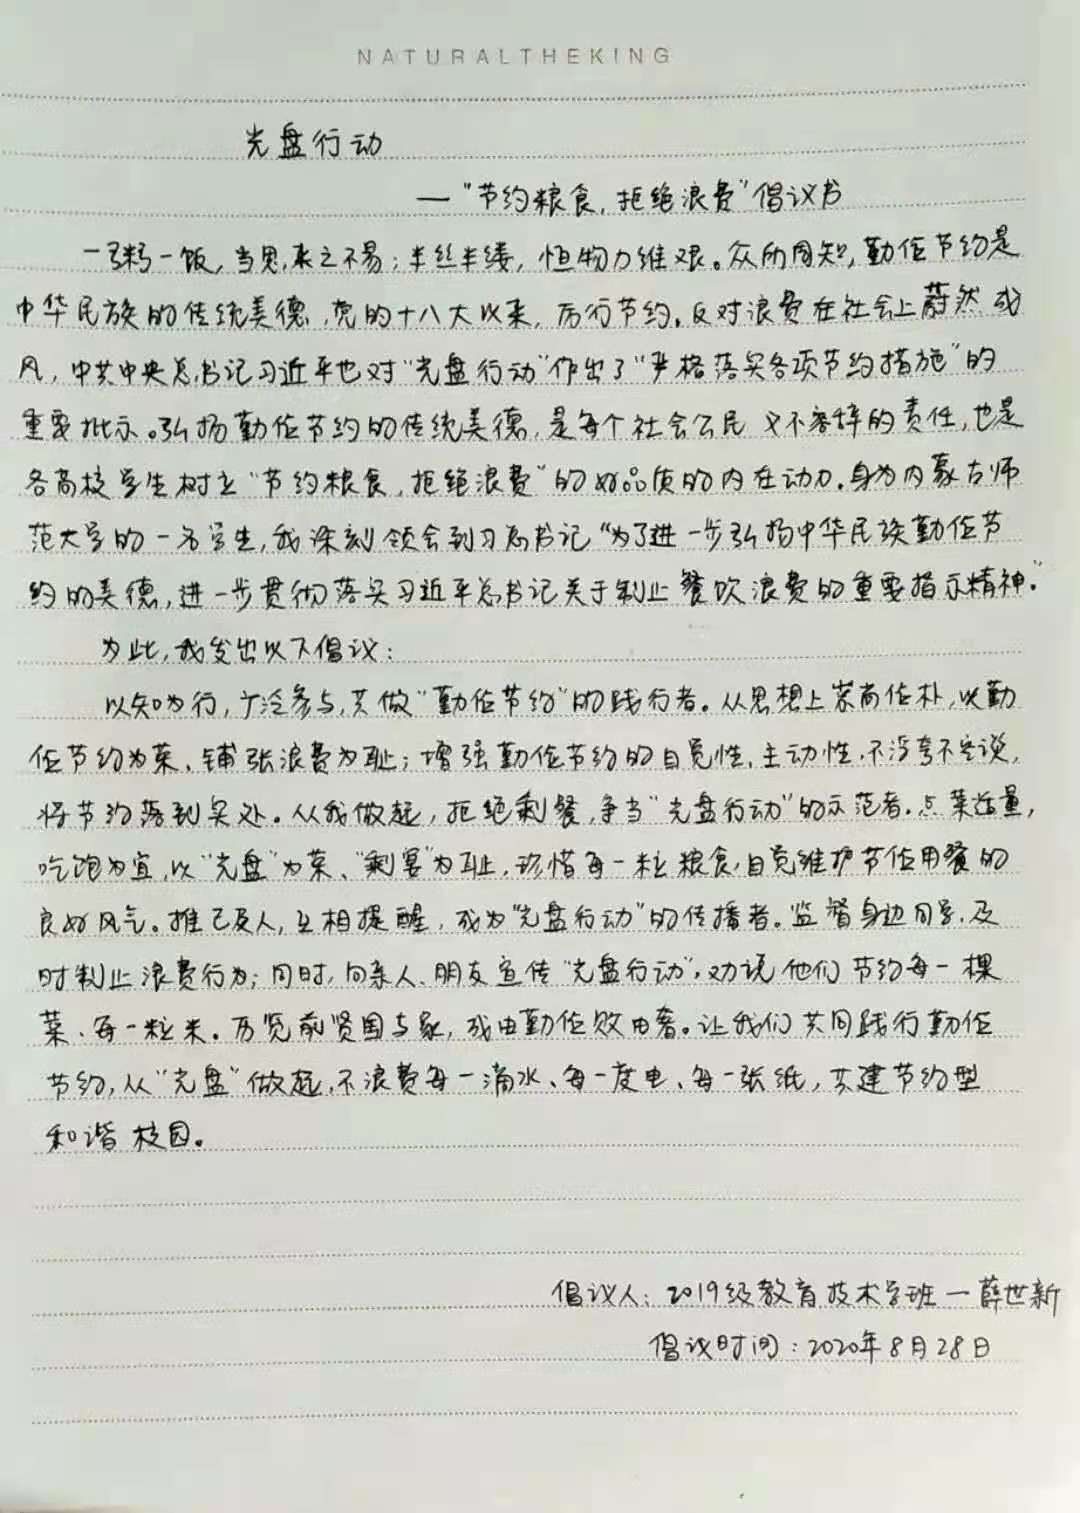 NATURALTHEKING
光盘行动
—“节约粮食,拒绝浪费”倡议书
一粥一饭,当思来之不易;半丝半缕,恒物力维艰。众所周知,勤俭节约是
中华民族的传统美德,党的十八大以来,厉行节约,反对浪费在社会上蔚然成
风,中共中央总书记习近平也对“光盘行动”作出了“严格落实各项节约措施”的
重要批示。弘扬勤俭节约的传统美德,是每个社会公民义不容辞的责任,也是
各高校学生树立“节约粮食,拒绝浪费”的好品质的内在动力。身为内蒙古师
范大学的一名学生,我深刻领会到习总书记“为了进一步弘扬中华民族勤俭节
约的美德,进一步贯彻落实习近平总书记关于制止餐饮浪费的重要指示精神。”
为此,我发出以下倡议:
以知为行,广泛参与,共做“勤俭节约”的践行者。从思想上崇尚俭朴,以勤
俭节约为荣、铺张浪费为耻;增强勤俭节约的自觉性,主动性,不浮夸不空谈,
将节约落到实处。从我做起,拒绝剩餐,争当“光盘行动”的示范者。点菜适量,
吃饱为宜,以“光盘”为荣、“剩宴”为耻,珍惜每一粒粮食,自觉维护节俭用餐的
良好风气。推己及人,互相提醒,成为“光盘行动”的传播者。监督身边同学,及
时制止浪费行为;同时,向亲人、朋友宣传“光盘行动”,劝说他们节约每一棵
菜、每一粒米。历览前贤国与家,成由勤俭败由奢。让我们共同践行勤俭
节约,从“光盘”做起,不浪费每一滴水、每一度电、每一张纸,共建节约型
和谐校园。
倡议人:2019级教育技术学班—薛世新
倡议时间:2020年8月28日